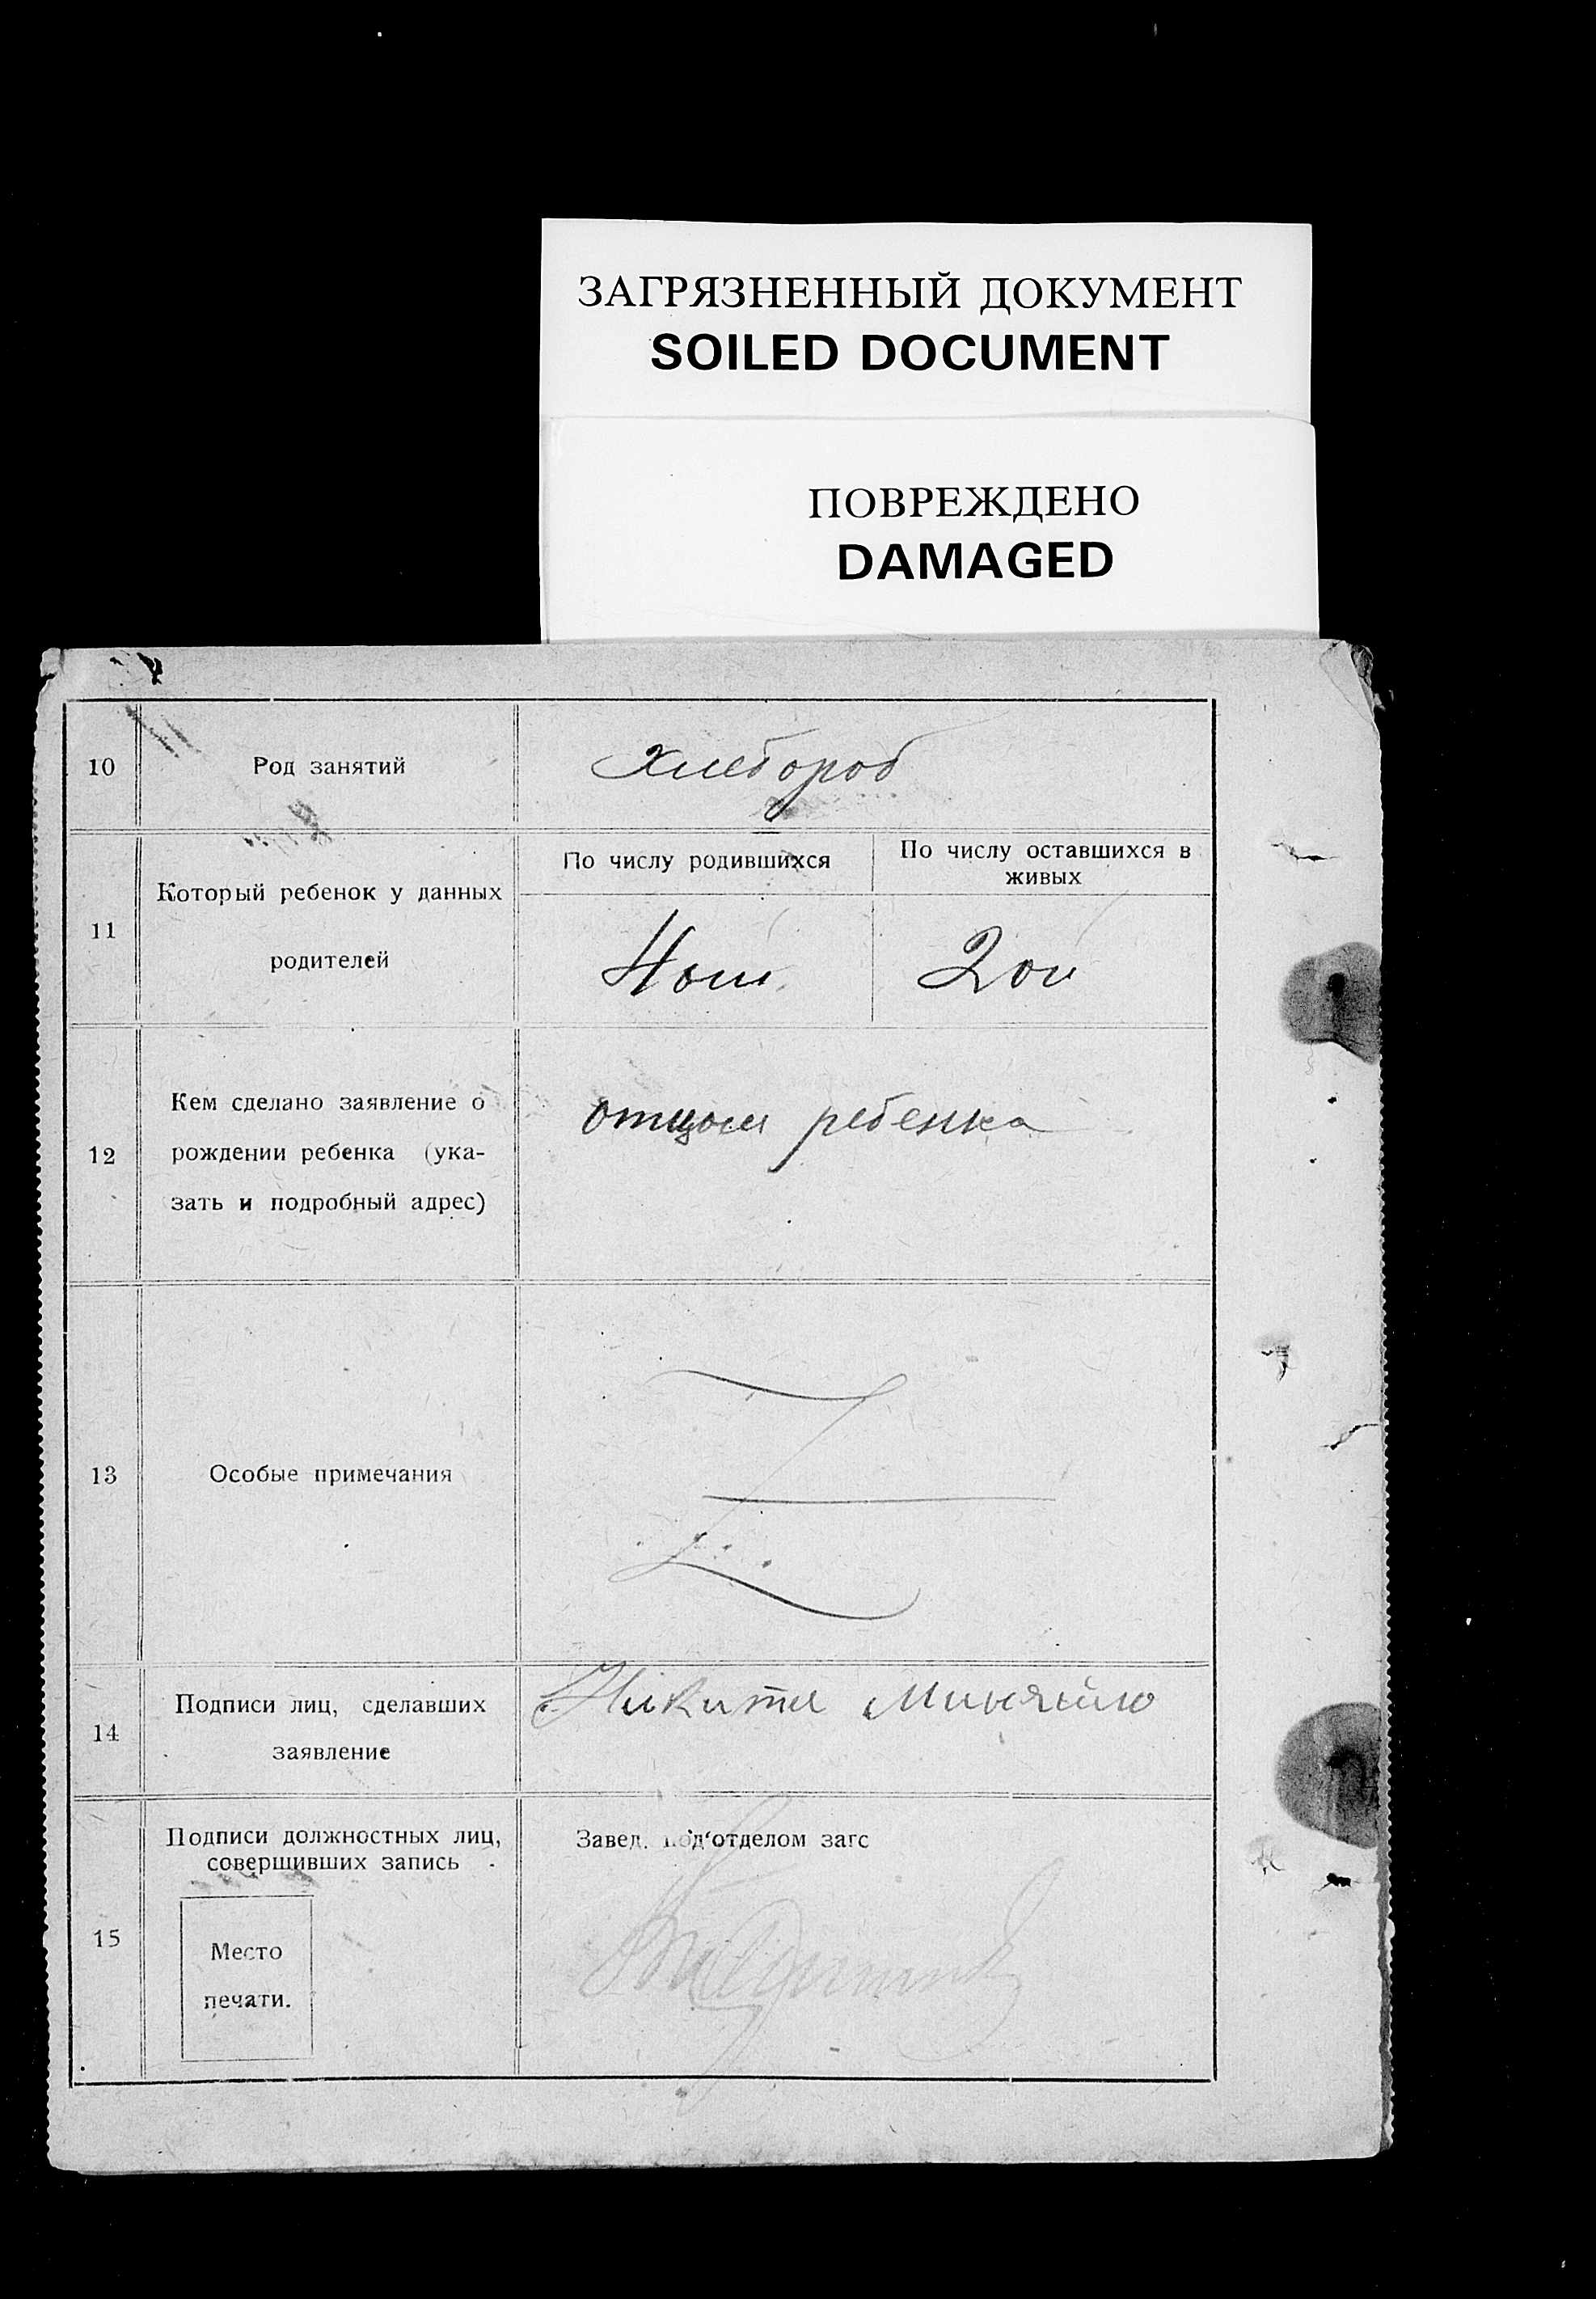 ЗАГРЯЗНЕННЫЙ ДОКУМЕНТ
SOILED DOCUMENT
ПОВРЕЖДЕНО
DAMAGED
10 Род занятий Хлебороб
11 Который ребенок у данных
родителей
По числу родившихся
По числу оставшихся в
живых
4ый 2ой
12 Кем сделано заявление о
рождении ребенка (ука-
зать и подробный адрес)
отцом ребенка
13 Особые примечания
14 Подписи лиц, сделавших
заявление
Никита
15 Подписи должностных лиц,
совершивших запись
Место
печати.
Завед. под'отделом загс